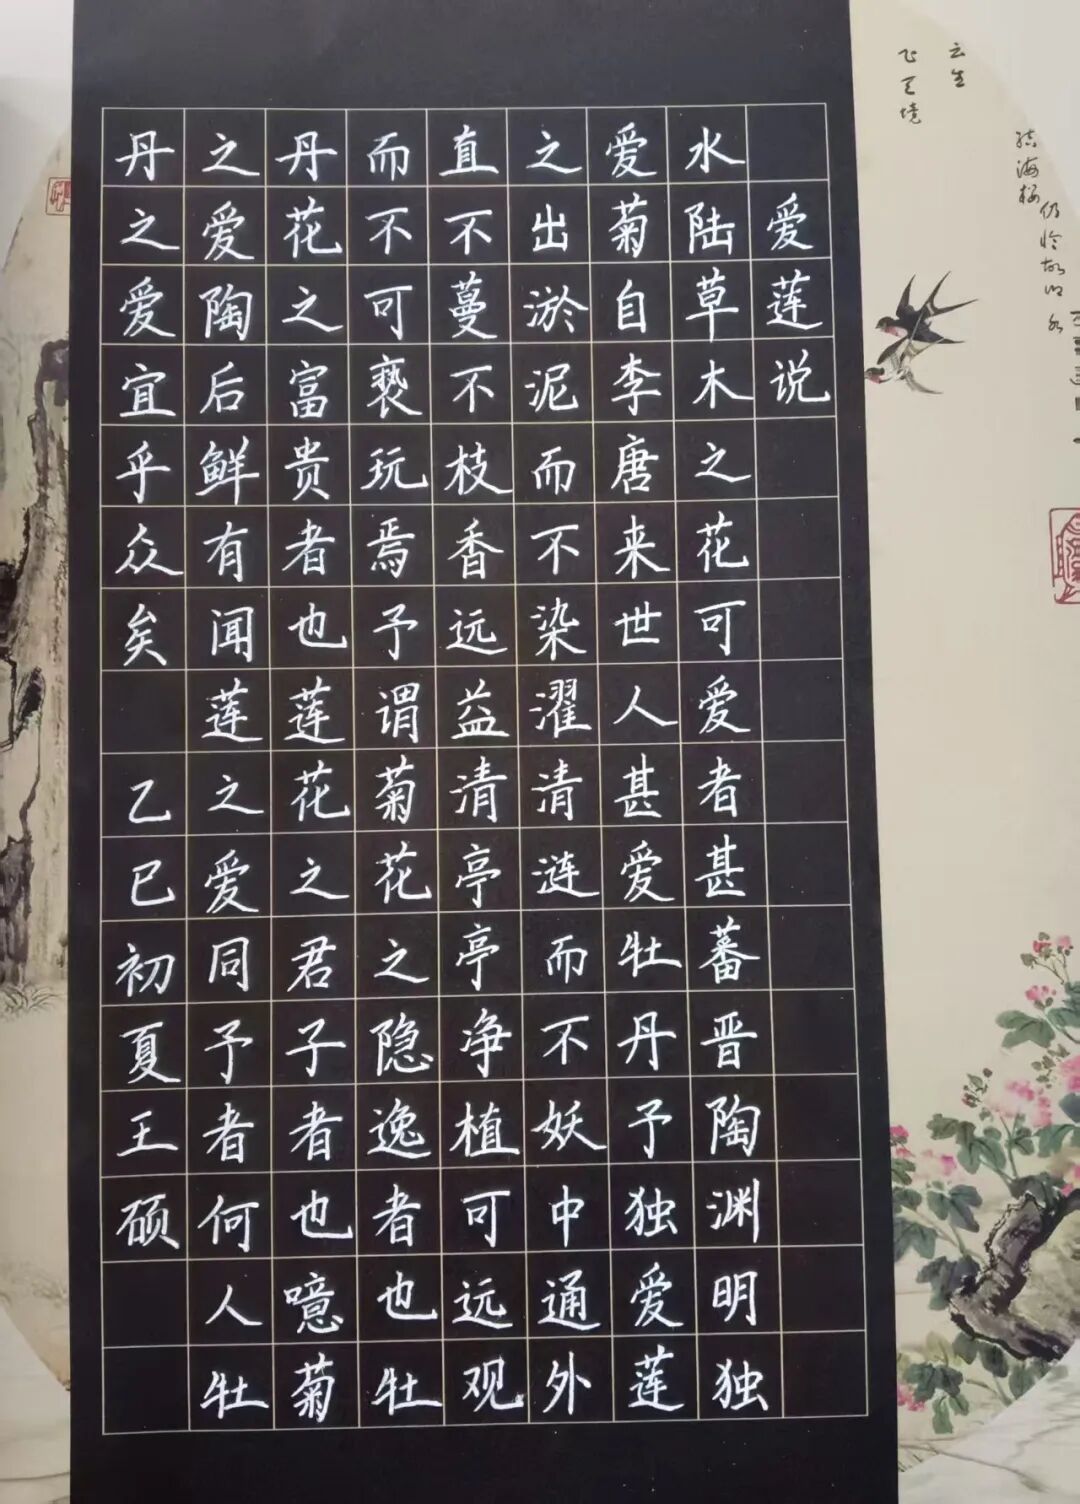 爱莲说
水陆草木之花可爱者甚蕃晋陶渊明独
爱菊自李唐来世人甚爱牡丹予独爱莲
之出淤泥而不染濯清涟而不妖中通外
直不蔓不枝香远益清亭亭净植可远观
而不可亵玩焉予谓菊花之隐逸者也牡
丹花之富贵者也莲花之君子者也噫菊
之爱陶后鲜有闻莲之爱同予者何人牡
丹之爱宜乎众矣 乙巳初夏王硕